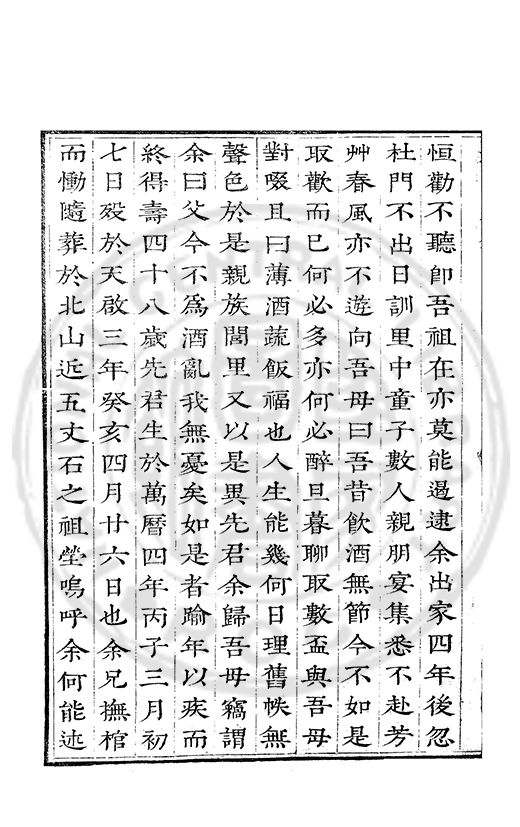 恒勸不聽卽吾祖在亦莫能遏逮余出家四年後忽
杜門不出日訓里中童子數人親朋宴集悉不赴芳
艸春風亦不遊向吾母曰吾昔飲酒無節今不如是
取歡而已何必多亦何必醉旦暮聊取數盃與吾母
對啜且曰薄酒蔬飯福也人生能幾何日理舊帙無
聲色於是親族閭里又以是異先君余歸吾母竊謂
余曰父今不爲酒亂我無憂矣如是者踰年以疾而
終得壽四十八歲先君生於萬曆四年丙子三月初
七日歿於天啟三年癸亥四月廿六日也余兄撫棺
而慟隨葬於北山近五丈石之祖塋嗚呼余何能述